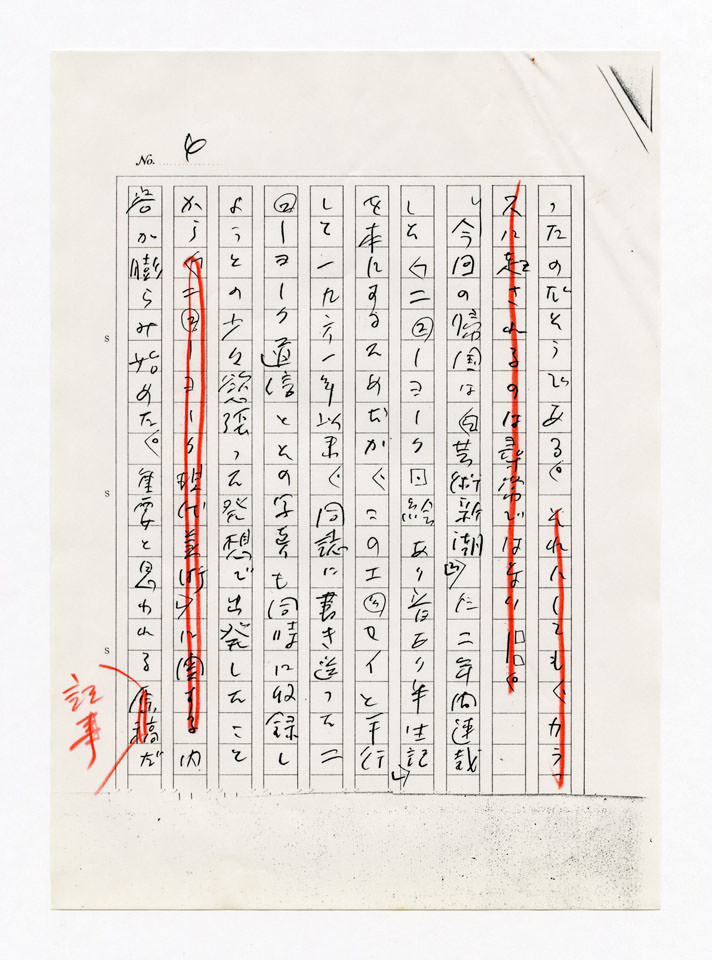 No. 4
ったのだそうである。それにしても、カラ
スに起されるのは尋常ではない
今回の帰国は《芸術新潮》に二年間連載
した《ニューヨーク 絵あり音あり半生記》
を本にするためだが、このエッセイと平行
して一九六一年以来、同誌に書き送ったニ
ューヨーク通信とその写真も同時に収録し
ようとの少々欲張った発想で出発したこと
から《ニューヨーク現代美術》に関する内
容が膨らみ始めた。重要と思われる原稿だ
記事
S
S
S